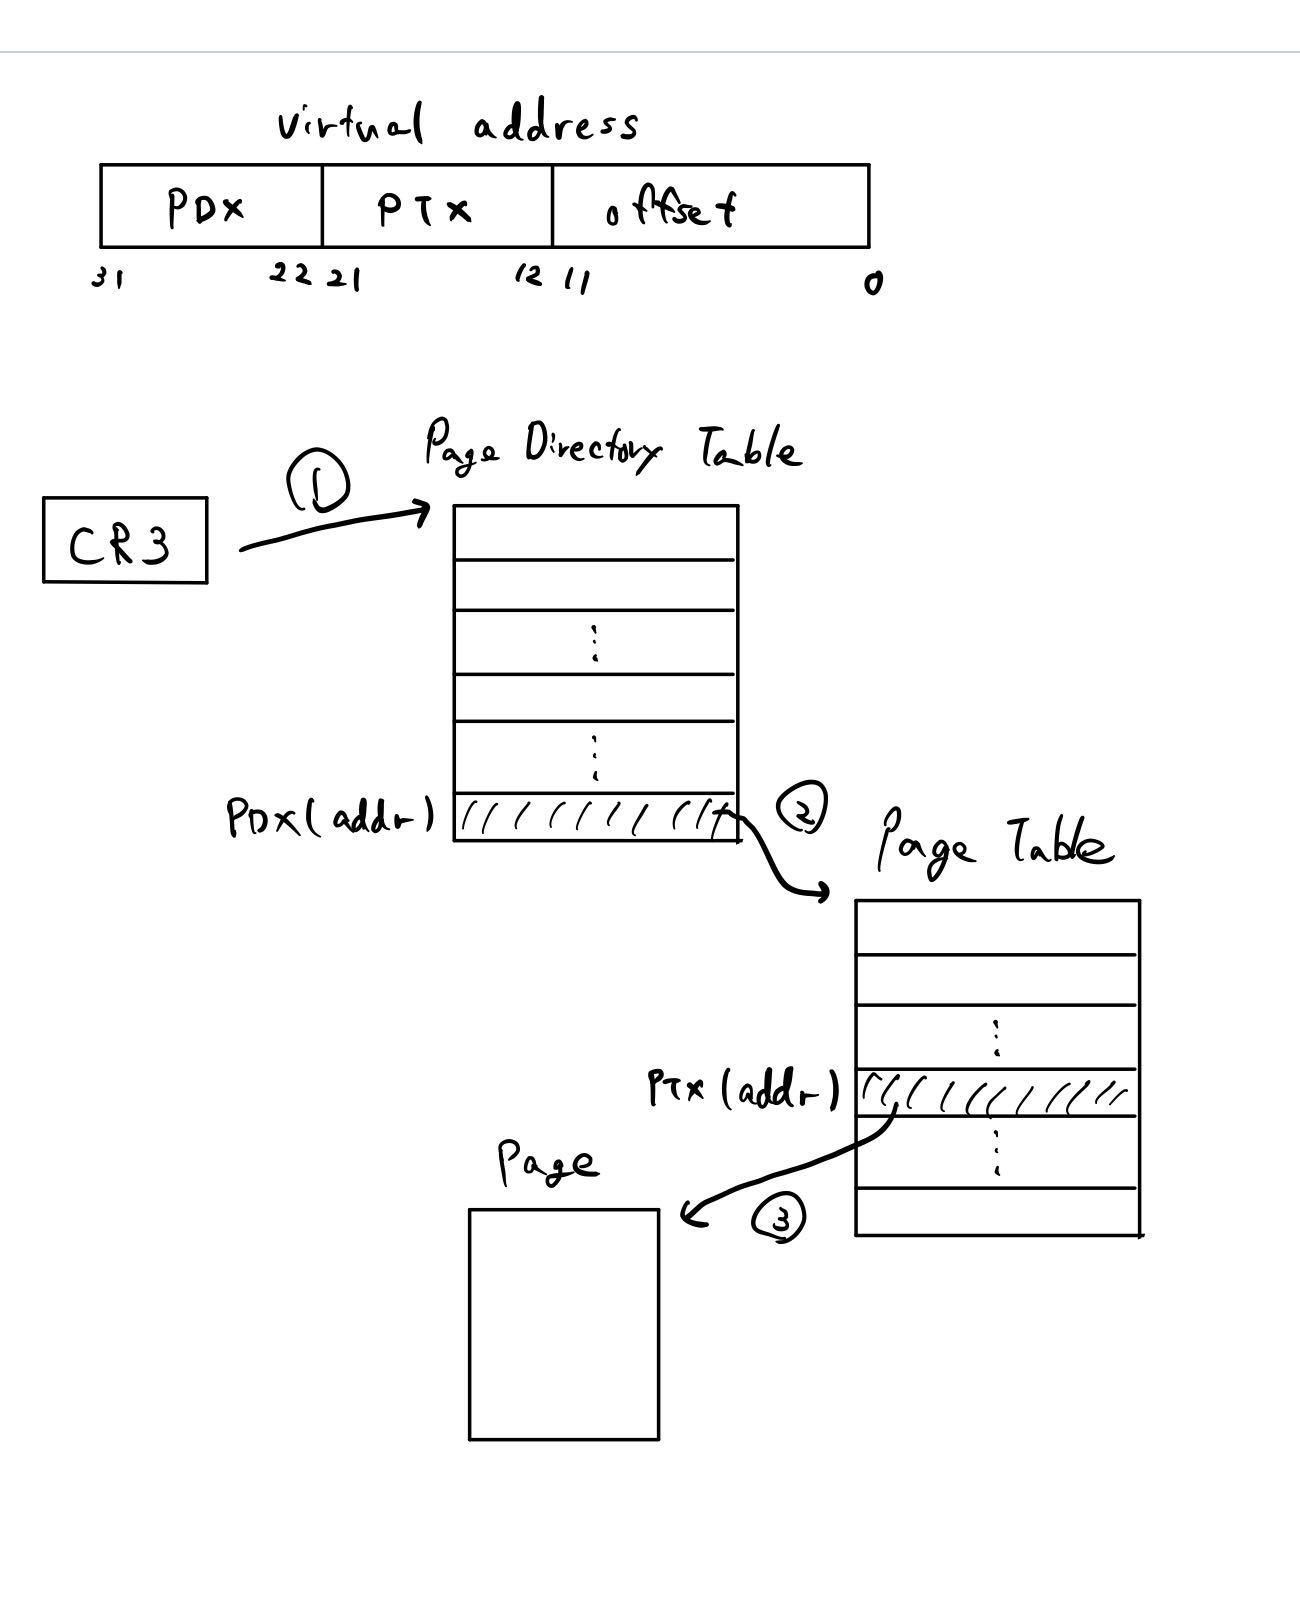 virtual address
PDX PTX offset
31 22 21 12 11 0
Page Directory Table
①
CR3
②
PDX(addr)
Page Table
PTX (addr)
Page
③